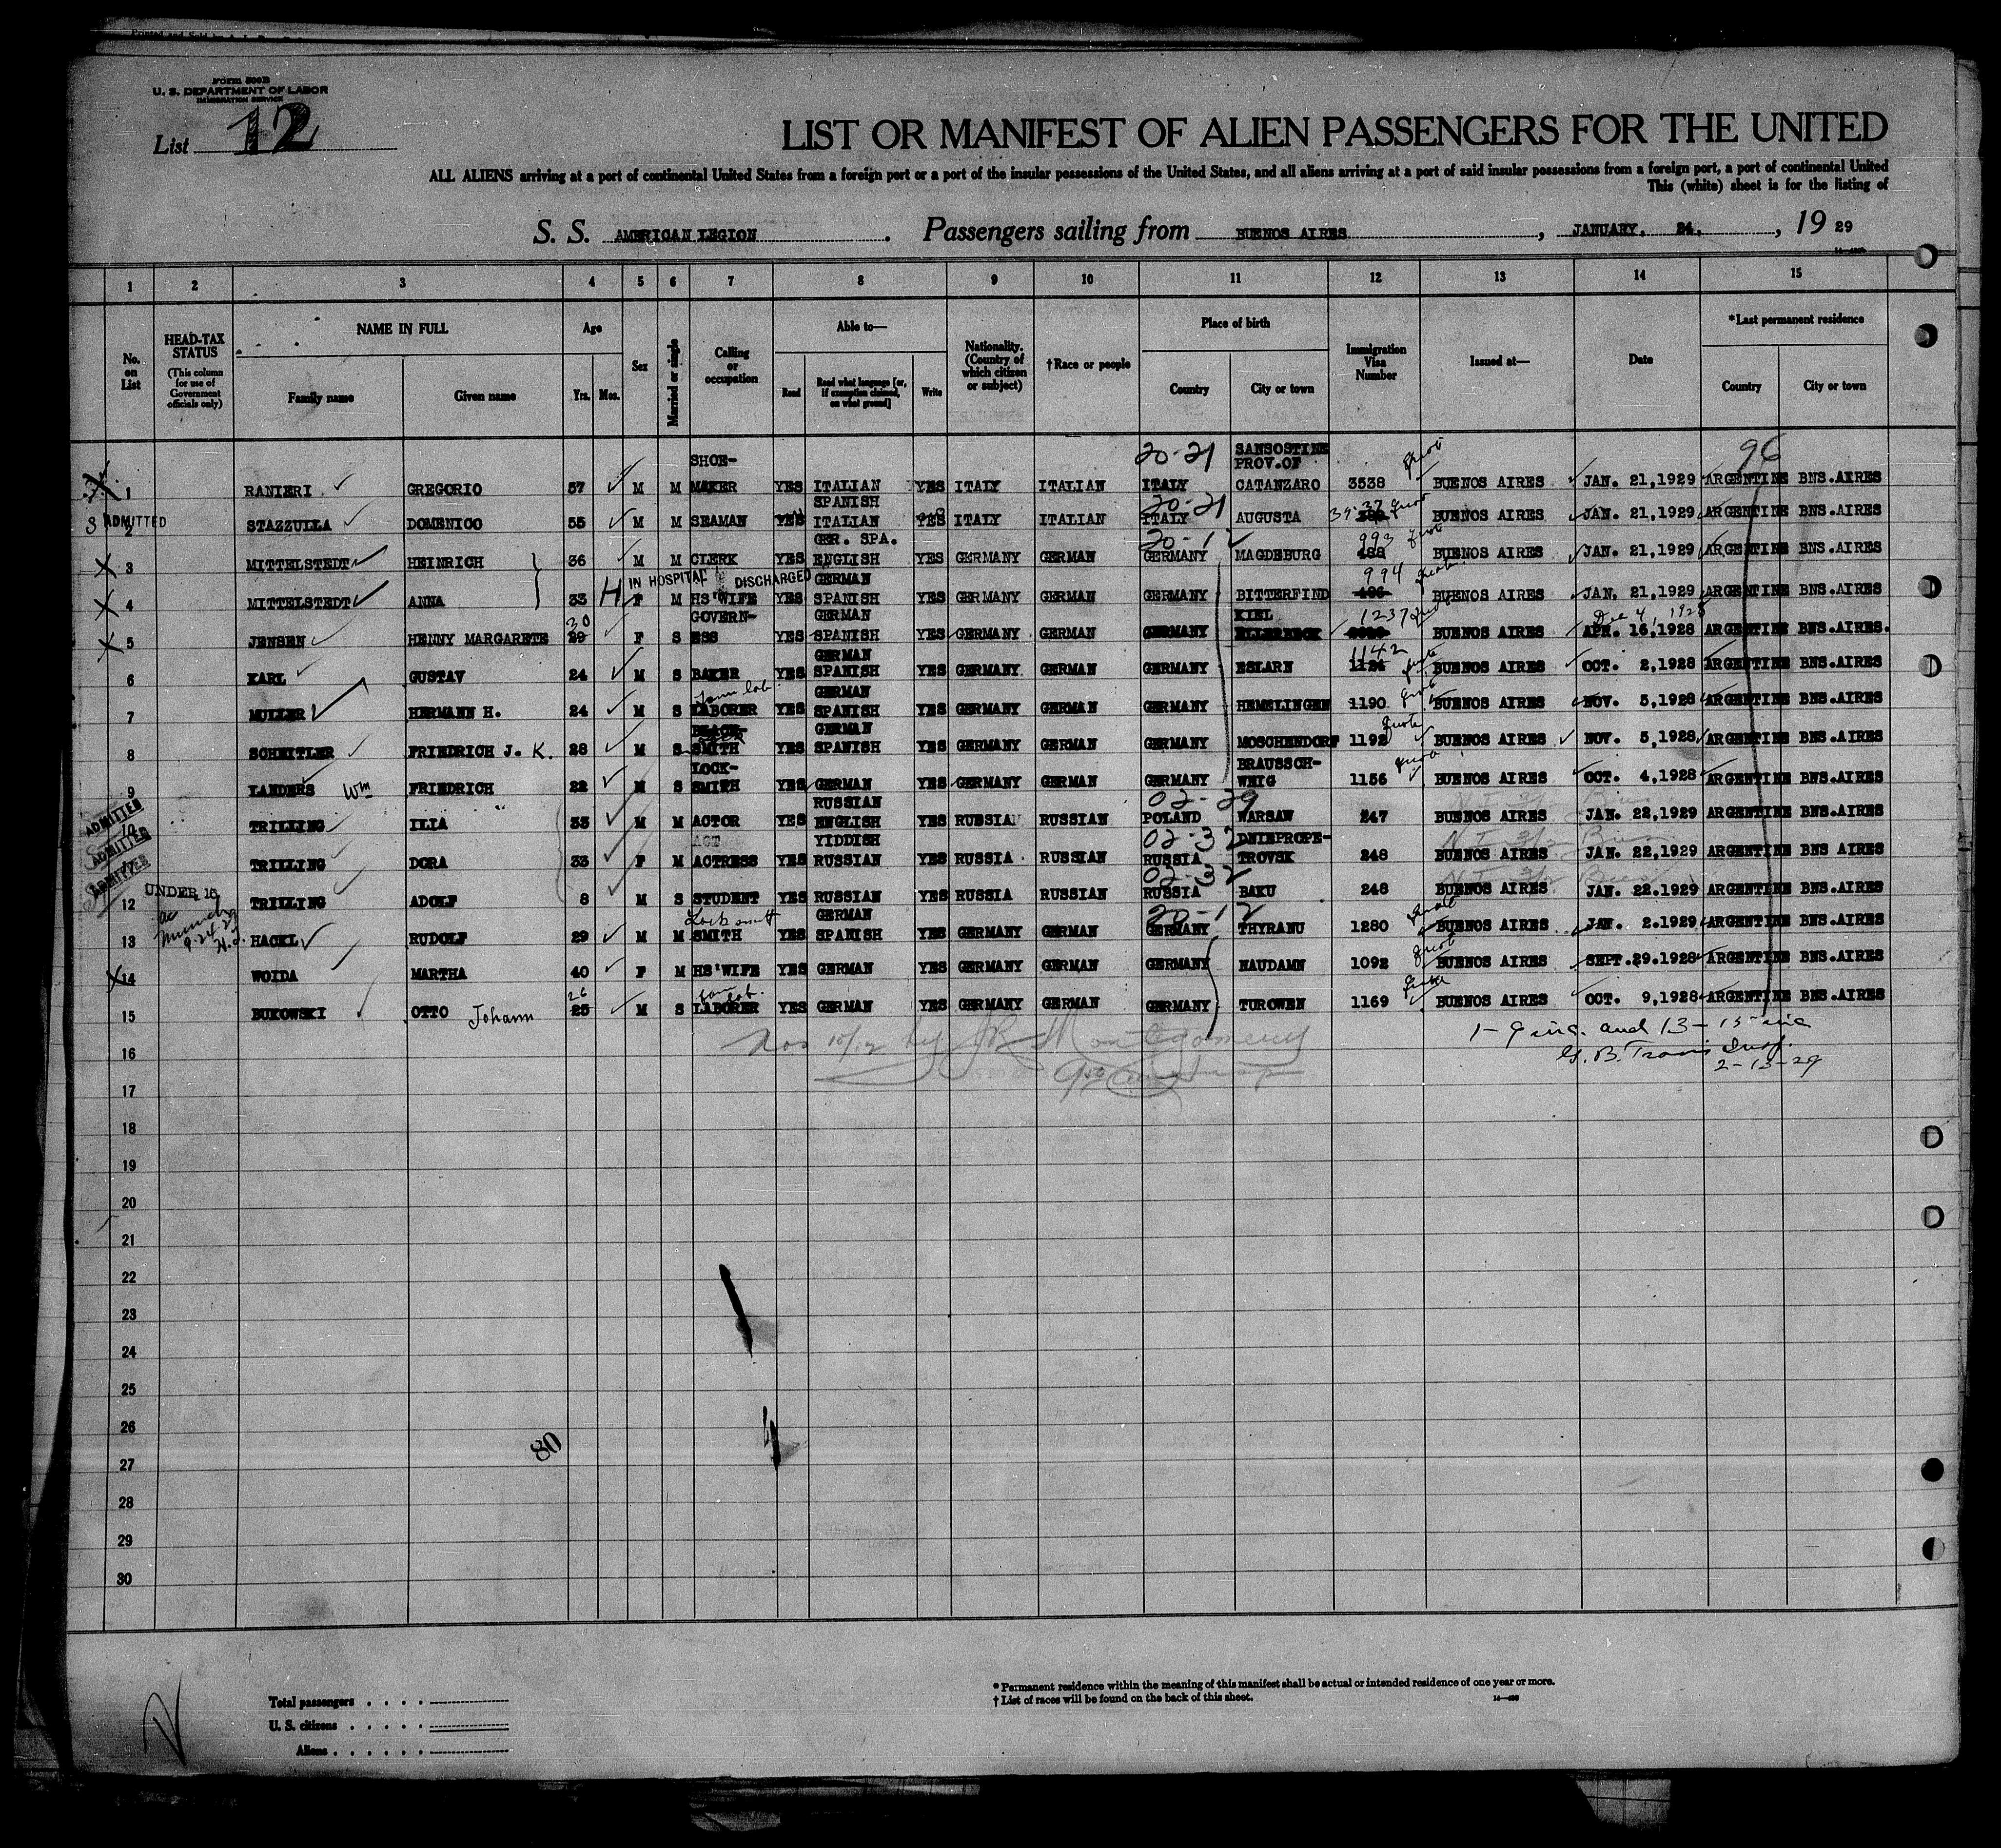 Form 500B
U. S. DEPARTMENT OF LABOR
IMMIGRATION SERVICE
List 12
LIST OR MANIFEST OF ALIEN PASSENGERS FOR THE UNITED
ALL ALIENS arriving at a port of continental United States from a foreign port or a port of the insular possessions of the United States, and all aliens arriving at a port of said insular possessions from a foreign port, a port of continental United
This (white) sheet is for the listing of
S. S. AMERICAN LEGION . Passengers sailing from BUENOS AIRES , JANUARY. 24. , 19 29
1 2 3 4 5 6 7 8 9 10 11 12 13 14 15
No. on List
HEAD-TAX STATUS
(This column for use of Government officials only)
NAME IN FULL
Family name Given name
Age
Yrs. Mos.
Sex
Married or single
Calling or occupation
Able to—
Read Read what language [or, if exemption claimed, on what ground] Write
Nationality. (Country of which citizen or subject)
†Race or people
Place of birth
Country City or town
Immigration Visa Number
Issued at—
Date
*Last permanent residence
Country City or town
96
1 RANIERI GREGORIO 57 M M SHOE-MAKER YES ITALIAN SPANISH YES ITALY ITALIAN 20-21 ITALY SANSOSTINE PROV.OF CATANZARO 3538 BUENOS AIRES JAN. 21,1929 ARGENTINE BNS.AIRES
ADMITTED 2 STAZZULLA DOMENICO 55 M M SEAMAN YES ITALIAN YES ITALY ITALIAN 20-21 ITALY AUGUSTA 3537 BUENOS AIRES JAN. 21,1929 ARGENTINE BNS.AIRES
3 MITTELSTEDT HEINRICH 36 M M CLERK YES GER. SPA. ENGLISH YES GERMANY GERMAN 20-1 GERMANY MAGDEBURG 993 BUENOS AIRES JAN. 21,1929 ARGENTINE BNS.AIRES
H IN HOSPITAL DISCHARGED
4 MITTELSTEDT ANNA 33 F M HS'WIFE YES GERMAN SPANISH YES GERMANY GERMAN GERMANY BITTERFIND 994 BUENOS AIRES JAN. 21,1929 ARGENTINE BNS.AIRES
5 JENSEN HENNY MARGARETE 30 29 F S GOVERN-ESS YES GERMAN SPANISH YES GERMANY GERMAN GERMANY KIEL ELLERBECK 1237 BUENOS AIRES Dec 4, 1928 APR. 16,1928 ARGENTINE BNS.AIRES.
6 KARL GUSTAV 24 M S BAKER YES GERMAN SPANISH YES GERMANY GERMAN GERMANY ESLARN 1142 1124 BUENOS AIRES OCT. 2,1928 ARGENTINE BNS.AIRES
7 MULLER HERMANN H. 24 M S LABORER YES GERMAN SPANISH YES GERMANY GERMAN GERMANY HEMELINGEN 1190 BUENOS AIRES NOV. 5,1928 ARGENTINE BNS.AIRES
8 SCHEITLER FRIEDRICH J. K. 28 M S BLACK-SMITH YES GERMAN SPANISH YES GERMANY GERMAN GERMANY MOSCHENDORF 1192 quota BUENOS AIRES NOV. 5,1928 ARGENTINE BNS.AIRES
9 LANDERS Wm FRIEDRICH 22 M S LOCK-SMITH YES GERMAN YES GERMANY GERMAN GERMANY BRAUSSCH-WEIG 1156 BUENOS AIRES OCT. 4,1928 ARGENTINE BNS.AIRES
ADMITTED 10 TRILLING ILIA 33 M M ACTOR YES RUSSIAN ENGLISH YES RUSSIA RUSSIAN 02-29 POLAND WARSAW 247 BUENOS AIRES JAN. 22,1929 ARGENTINE BNS.AIRES
ADMITTED TRILLING DORA 33 F M ACT ACTRESS YES YIDDISH RUSSIAN YES RUSSIA RUSSIAN 02-32 RUSSIA DNIEPROPE-TROVSK 248 BUENOS AIRES JAN. 22,1929 ARGENTINE BNS AIRES
ADMITTED UNDER 16 12 TRILLING ADOLF 8 M S STUDENT YES RUSSIAN YES RUSSIA RUSSIAN 02-32 RUSSIA BAKU 248 BUENOS AIRES JAN. 22.1929 ARGENTINE BNS.AIRES
13 HACKL RUDOLF 29 M M Locksmith SMITH YES GERMAN SPANISH YES GERMANY GERMAN 20-1 GERMANY THYRANU 1280 BUENOS AIRES JAN. 2.1929 ARGENTINE BNS.AIRES
14 WOIDA MARTHA 40 F M HS'WIFE YES GERMAN YES GERMANY GERMAN GERMANY NAUDAMN 1092 BUENOS AIRES SEPT.29.1928 ARGENTINE BNS.AIRES
15 BUKOWSKI OTTO Johann 26 25 M S farm lab. LABORER YES GERMAN YES GERMANY GERMAN GERMANY TUROWEN 1169 BUENOS AIRES OCT. 9,1928 ARGENTINE BNS.AIRES
Nos 10/12 by J R Montgomery
1-9 inc. and 13-15 inc
G. B. Travis Insp.
2-13-29
16
17
18
19
20
21
22
23
24
25
26
27
28
29
30
80
Total passengers
U. S. citizens
Aliens
* Permanent residence within the meaning of this manifest shall be actual or intended residence of one year or more.
† List of races will be found on the back of this sheet.